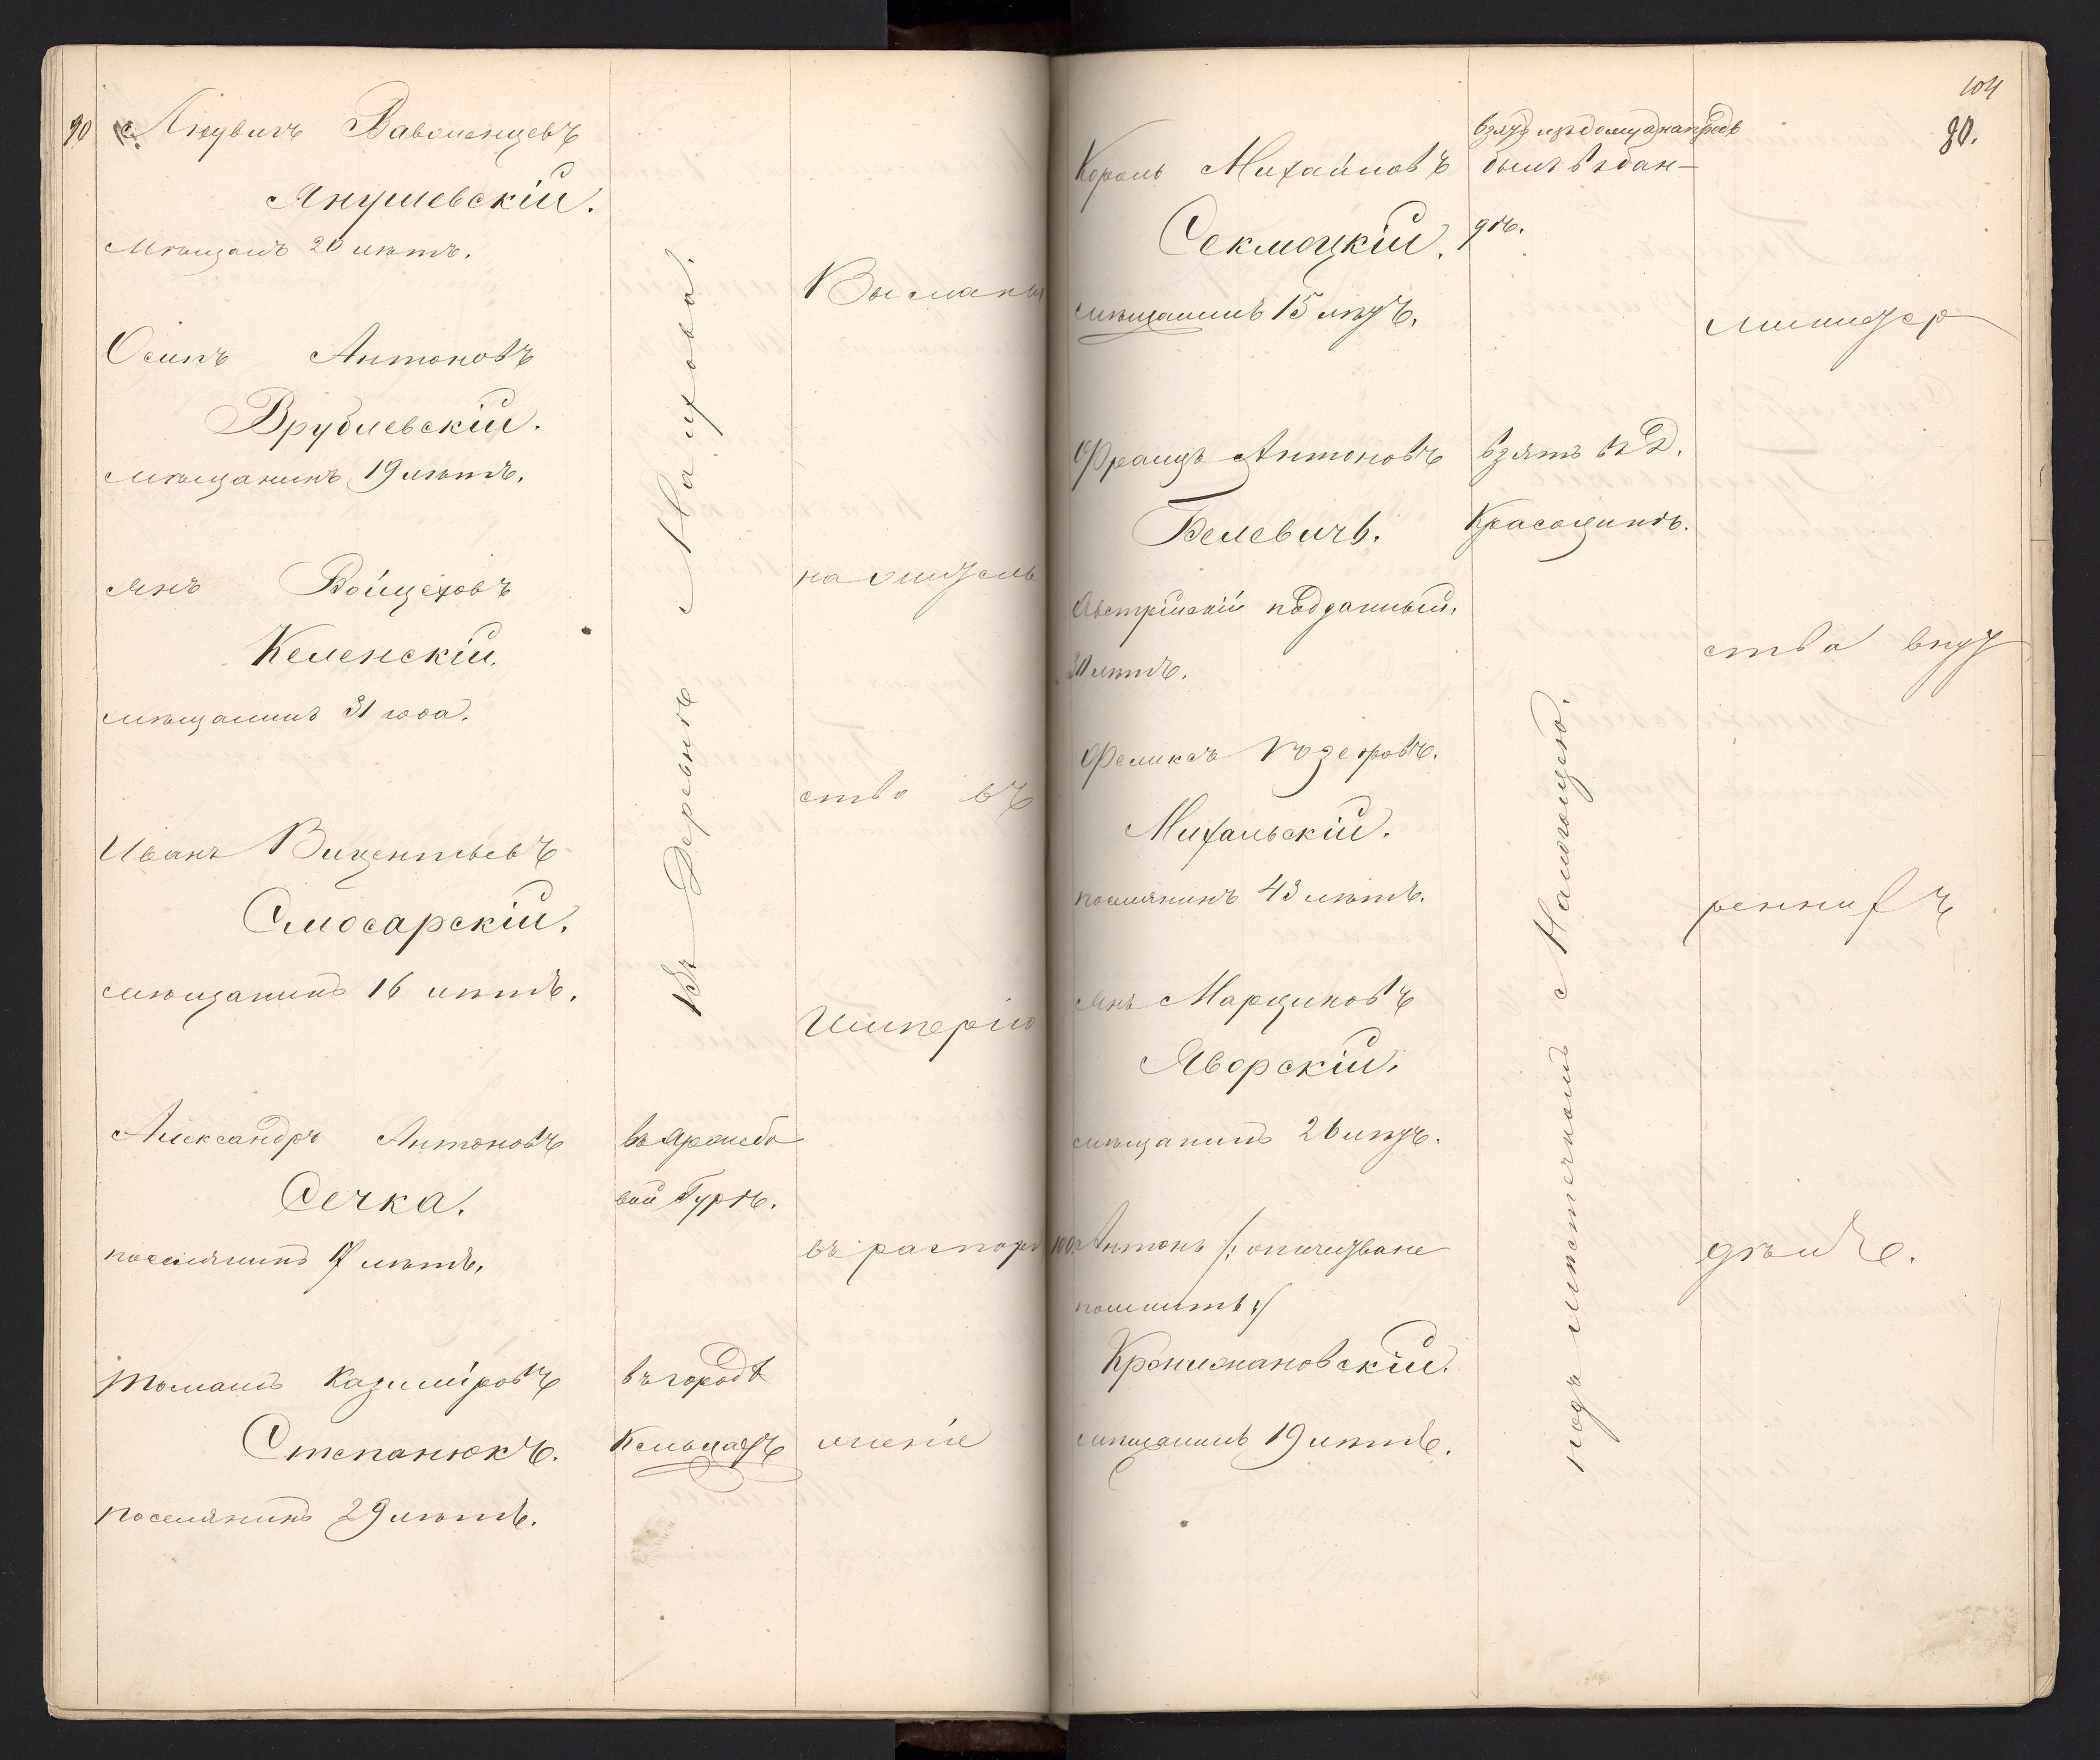 90
Людвигъ
Янушевскій.
Мѣщанъ 20 лѣтъ.
Осипъ Антоновъ
Врублевскій.
мѣщанинъ 19 лѣтъ.
Янъ Войцеховъ
Келенскій.
мѣщанинъ 31 года.
Иванъ Вицентьевъ
Слюсарскій.
мѣщанинъ 16 лѣтъ.
Александръ Антоновъ
Сечка.
поселянинъ 17 лѣтъ.
Томашъ Казиміровъ
Степанюкъ.
поселянинъ 29 лѣтъ.
Въ Деревнѣ Малахова.
вой Гурѣ.
въ городѣ
Кельцахъ
Высланы
на жительс
ство въ
Имперію
въ распоря
женіе
104
90.
Кароль Михайловъ
Секлюцкій.
мѣщанинъ 15 лѣтъ.
Францъ Антоновъ
Белевичъ.
Австрійскій подданный.
30 лѣтъ.
Феликсъ Юзефовъ.
Михальскій.
поселянинъ 43 лѣтъ.
Янъ Марциновъ
Яворскій.
мѣщанинъ 26 лѣтъ.
100. Антонъ /: отчества не
помнитъ :/
Кронимановскій.
мѣщанинъ 19 лѣтъ.
былъ въ бан-
дѣ.
взятъ въ Д.
Красоцинѣ.
подъ мѣстечкомъ Малогощею.
министер
ства внут
реннихъ
дѣлъ.